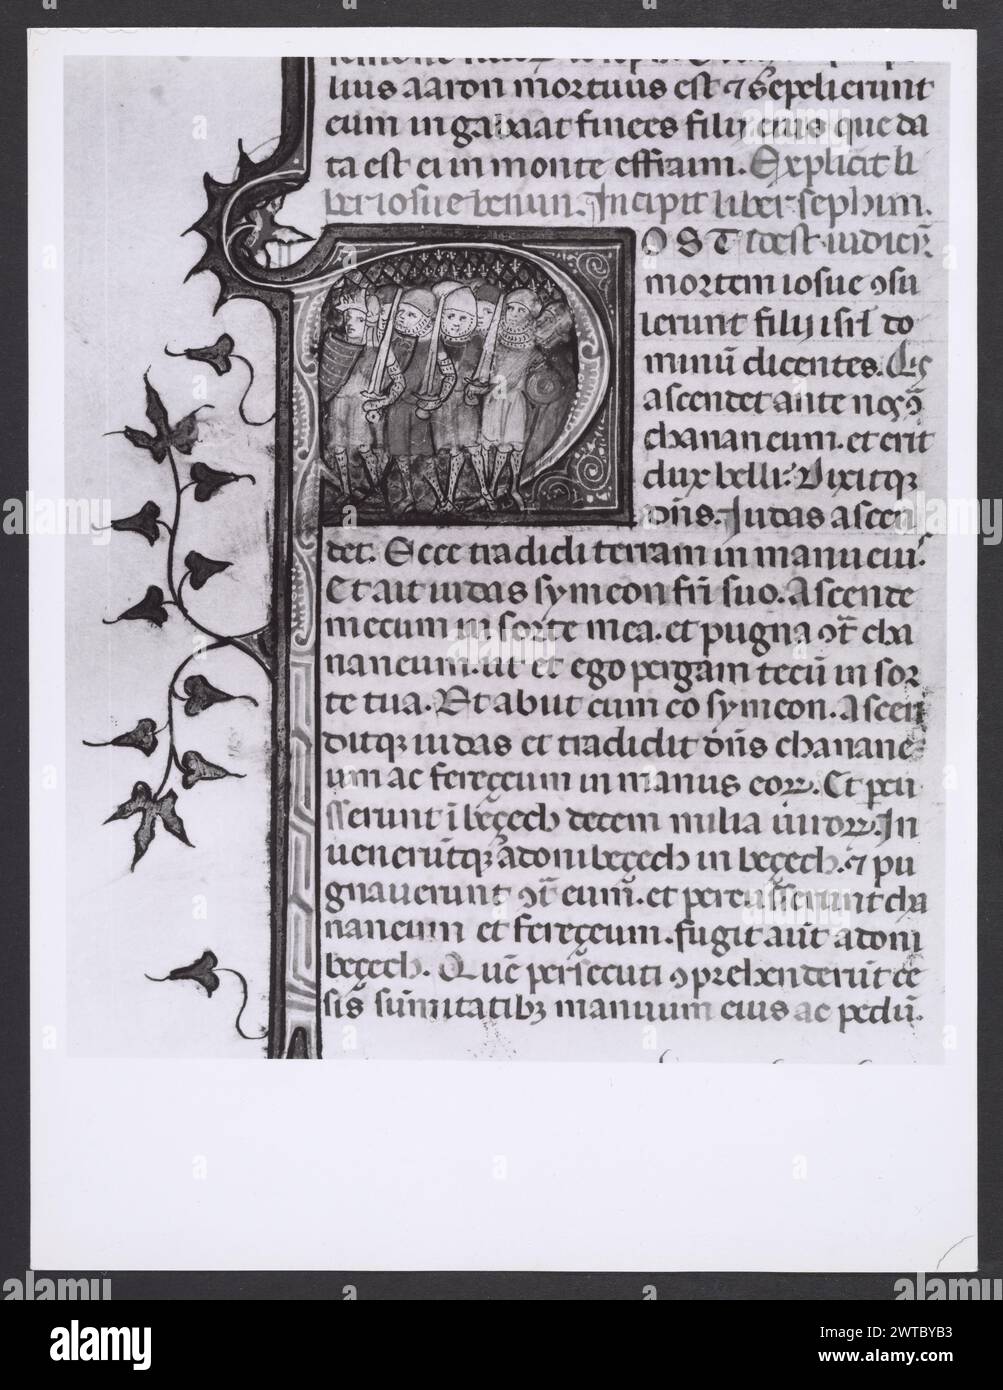 lius aaron mortuus est ⁊ sepelierunt
eum in gabaat finees filij eius que da
ta est ei in monte effraim. Explicit li
ber iosue benun. Incipit liber sephim.
POST
mortem iosue ꝯsu
lerunt filij isrl do
minū dicentes. Q̄s
ascendet ante nos ꝯ̄
chananeum. et erit
dux belli? Dixitqꝫ
dn̄s. Iudas ascen
det. Ecce tradidi terram in manu eius.
Et ait iudas symeon fri̅ suo. Ascende
mecum in sorte mea. et pugna ꝯt̄ cha
naneum. ut et ego pergam tecū in sor
te tua. Et abiit cum eo symeon. Ascen
ditqꝫ iudas et tradidit dn̄s chanane
um ac fereçeum in manus eoꝝ. Et ꝑcu
sserunt ī beçech decem milia uiroꝝ. In
uenerūtqꝫ adonibeçech in beçech. ⁊ pu
gnauerunt ꝯt̄ eum. et percusserunt cha
naneum et fereçeum. fugit aūt adoni
beçech. Quē persecuti ꝯprehenderūt ce
sis sūmitatibꝫ manuum eius ac pedū.
alamy
Image ID: 2WTBYB3
www.alamy.com